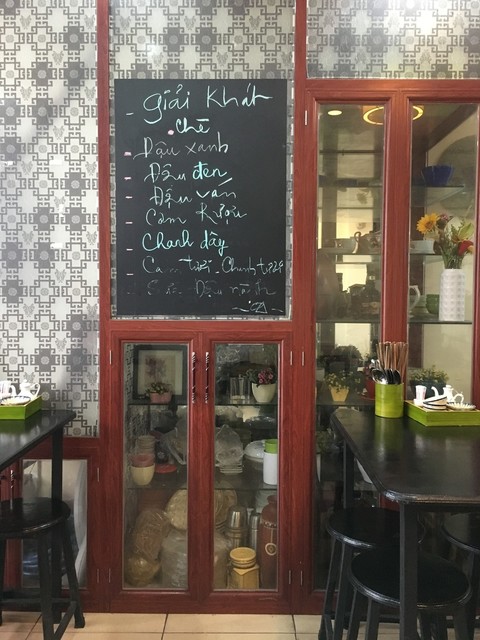 - giải khát
chè
- Đậu xanh
- Đậu đen
- Đậu ván
- Cơm Rượu
- Chanh dây
- Cam tươi - Chanh tươi
- Sữa Đậu nành